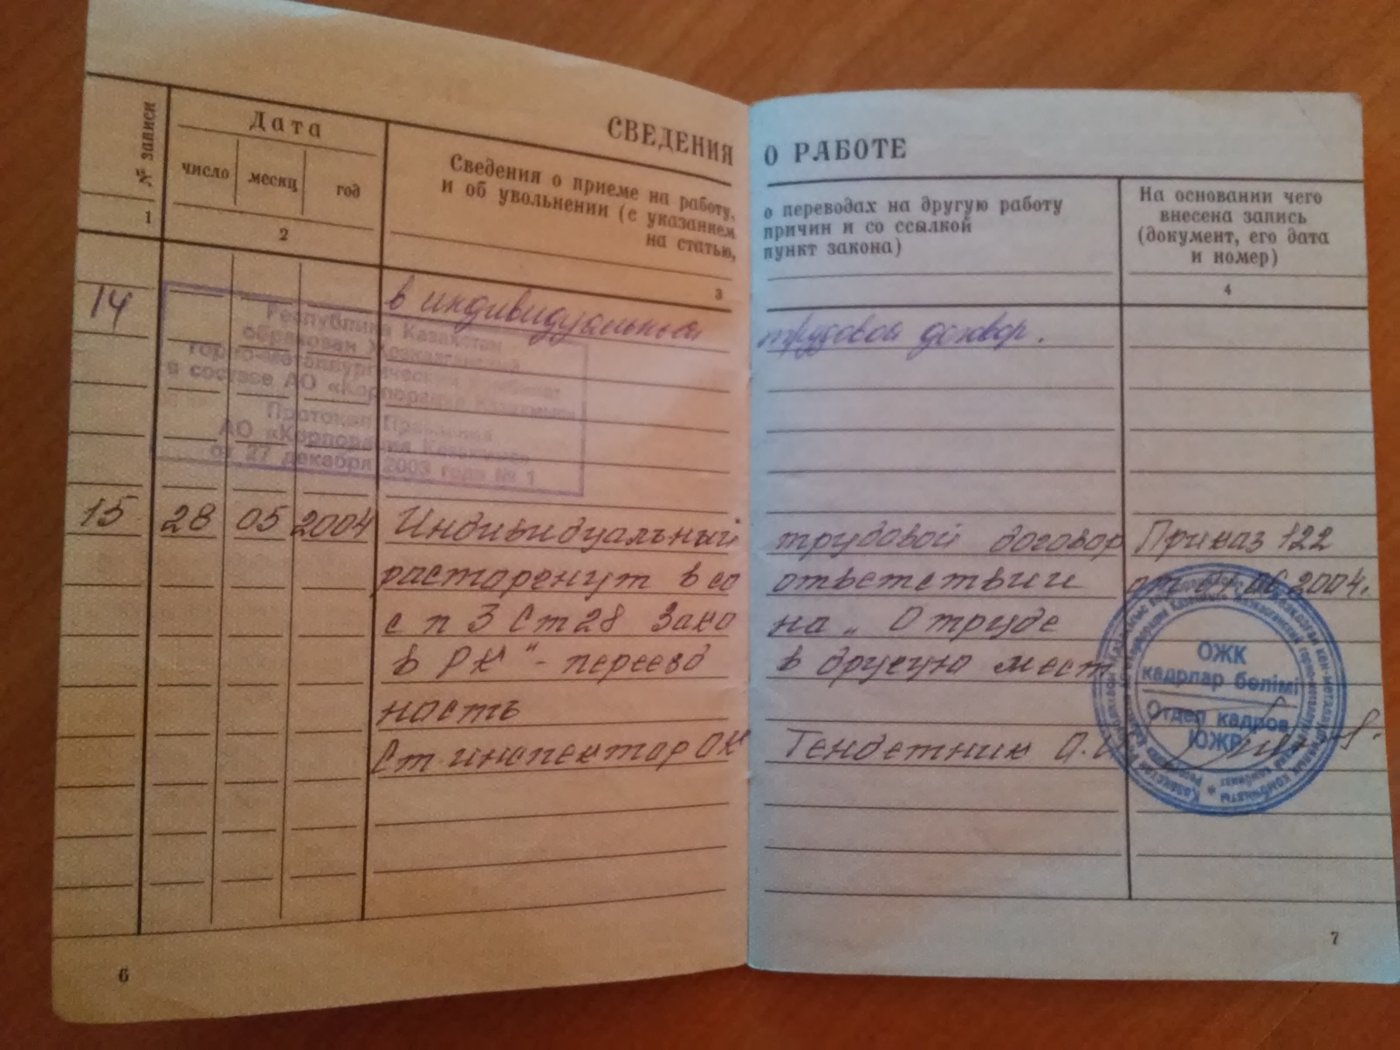 СВЕДЕНИЯ О РАБОТЕ
№ записи
Дата
число месяц год
Сведения о приеме на работу, о переводах на другую работу
и об увольнении (с указанием причин и со ссылкой
на статью, пункт закона)
На основании чего
внесена запись
(документ, его дата
и номер)
1 2 3 4
14 в индивидуальный трудовой договор.
Республика Казахстан
образован Жезказганский
горно-металлургический комбинат
в составе АО «Корпорация Казахмыс»
Протокол Правления
АО «Корпорация Казахмыс»
от 27 декабря 2003 года № 1
15 28 05 2004 Индивидуальный трудовой договор Приказ 122
расторгнут в со ответствии от 01.06.2004г.
с п 3 ст 28 Зако на „О труде
в РК" - переезд в другую мест
ность
Ст. инспектор ОК Тендетник О.
ОЖК
кадрлар бөлімі
Отдел кадров
ЮЖР
6
7